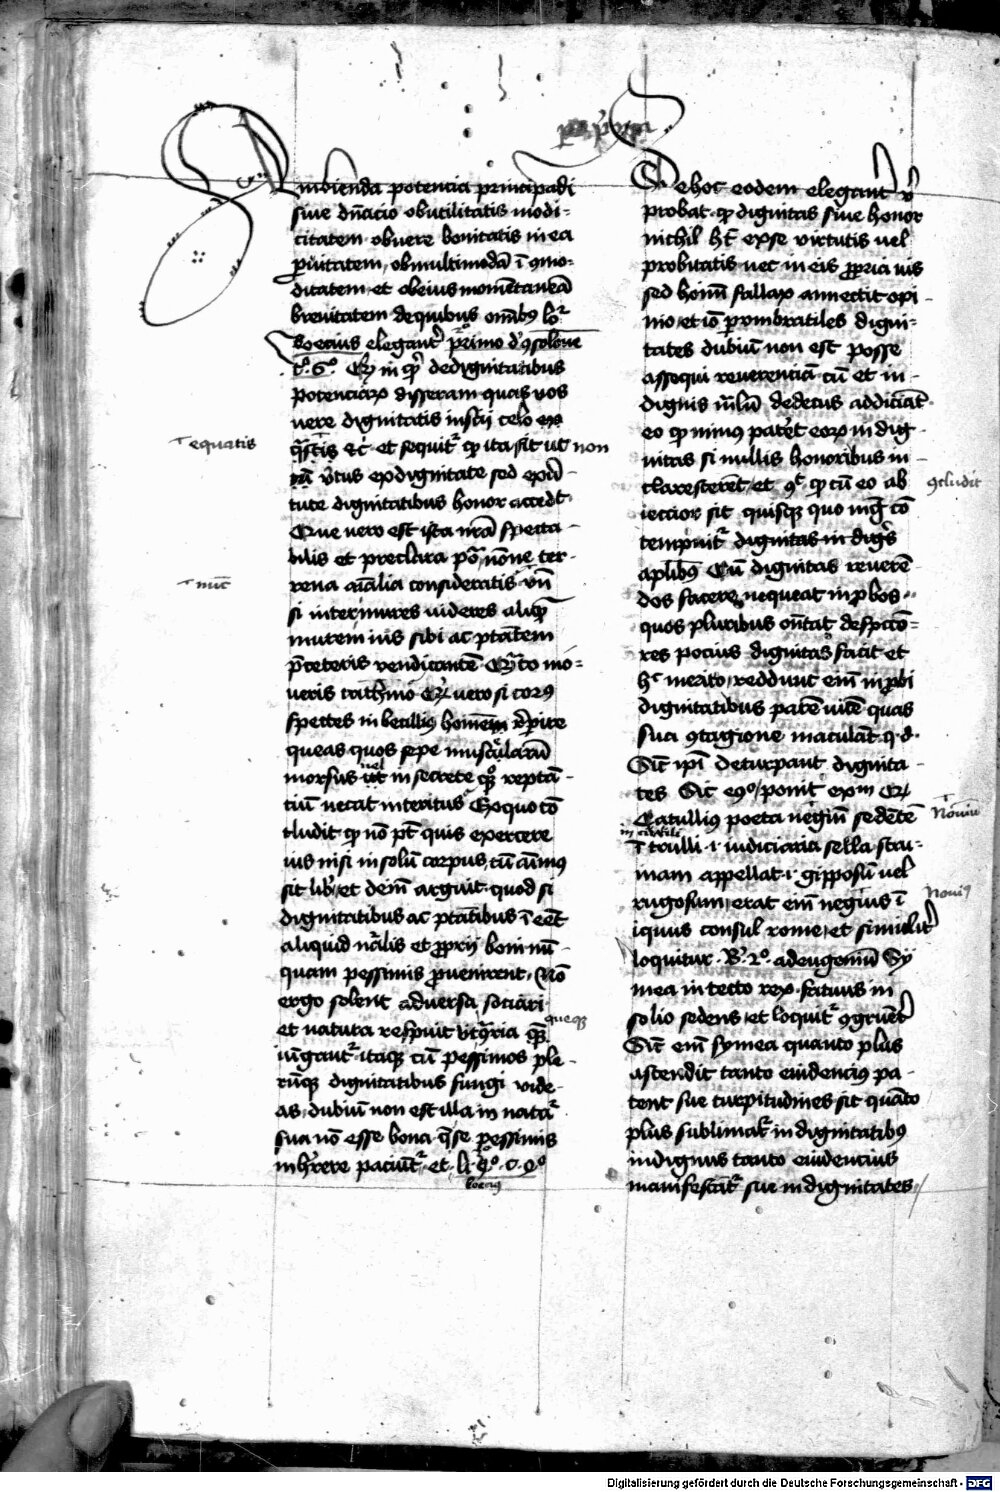 Ambienda potencia principandi
siue dn̄acio ob utilitatis modi-
citatem ob uere bonitatis in ea
p̱uitatem, ob multimodā ī ꝯmo-
ditatem et ob eius momētaneā
breuitatem de quibus om̄ibꝰ lo͛
boecius eleganter p̱rimo d' ꝯsolone
c°. 6°. Qͥ in qͥ de dignitatibus
potenciaꝝ disseram quas uos
uere dignitatis inscii celo ex
q̄stis ꝛc̄ et sequit͛ ꝙ ita sit ut non
equatis
v̄tus ex dignitate sed ex v̄
tute dignitatibus honor accedt.
Que uero est ista nr̄a specta-
bilis et preclara po͞ nōne ter-
rena aīalia consideratis vn̄
nūc
si inter mures uideres aliqͫ
murem ius sibi ac ptātem
p̄ ceteris vendicantē Qͣto mo-
ueris cachino Qͥ uero si corꝰ
spectes imbecilliꝰ homīe rep̱ire
queas quos sepe musculaꝝ
morsus uel in secreta qͦꝫ reptā-
tiū necat introitus Ex quo cō
cludit ꝙ nō pt̄ quis exercere
ius nisi in solū corpus, cū aīmꝰ
sit lib̄ et deīn arguit quod si
dignitatibus ac ptātibus ī eēt
aliquid nālis et p̱prii boni nū-
quam pessimis p̱uenirent. Nō
ergo solent aduersa sociari
et natura respuit ut ꝯͣria q̄ꝫ
queqꝫ
iūgant͛ itaqꝫ cū pessimos ple-
rūqꝫ dignitatibus fungi vide-
as, dubiū non est illa in natā
sua nō esse bona q̄ se pessimis
inh̄rere paciūt͛ et
boecius
De hoc eodem eleganter
probat ꝙ dignitas siue honor
nichil h̄t ex se virtutis uel
probitatis nec in eis p̱pria uis
sed hoīm fallax annectit opi-
nio et iō p̱ vmbratiles digni-
tates dubiū non est posse
assequi reuerenciā cū et in-
dignis dedecus addiciāt
eo ꝙ minꝰ patēt eoꝝ indig-
nitas si nullis honoribus in-
clarescerēt et ꝙ cū eo ab
ꝯcludit
iectior sit quisqꝫ quo mag̅ cō
tempnit͛ dignitas
Cū dignitas reuerē
dos facere nequeat improbos
quos pluribus ostētat despecto-
res pocius dignitas facit et
merito reddunt em̄ improbi
dignitatibus parē uicē quas
sua ꝯtagione maculāt q.d.
Sic ipī deturpant dignita-
tes Sic ponit exm
Catullius poeta negiū sedētē
Noniū
in curuli
ī trulli .i. iudiciaria sella stru-
mam appellat .i. gipposū uel
rugosum, erat em̄ negius ī
Noniꝰ
iquus consul rome et similiter
loquitur ad eugeniū Sy
mea in tecto rex fatuus in
solio sedens et loquit͛ ꝯgruent͛
Sic em̄ symea quanto plus
ascendit tanto euidenciꝰ pa-
tent sue turpitudines sic quāto
plus sublimat͛ in dignitatibꝰ
indignus tanto euidencius
manifestat͛ sue indignitates
Digitalisierung gefördert durch die Deutsche Forschungsgemeinschaft - DFG